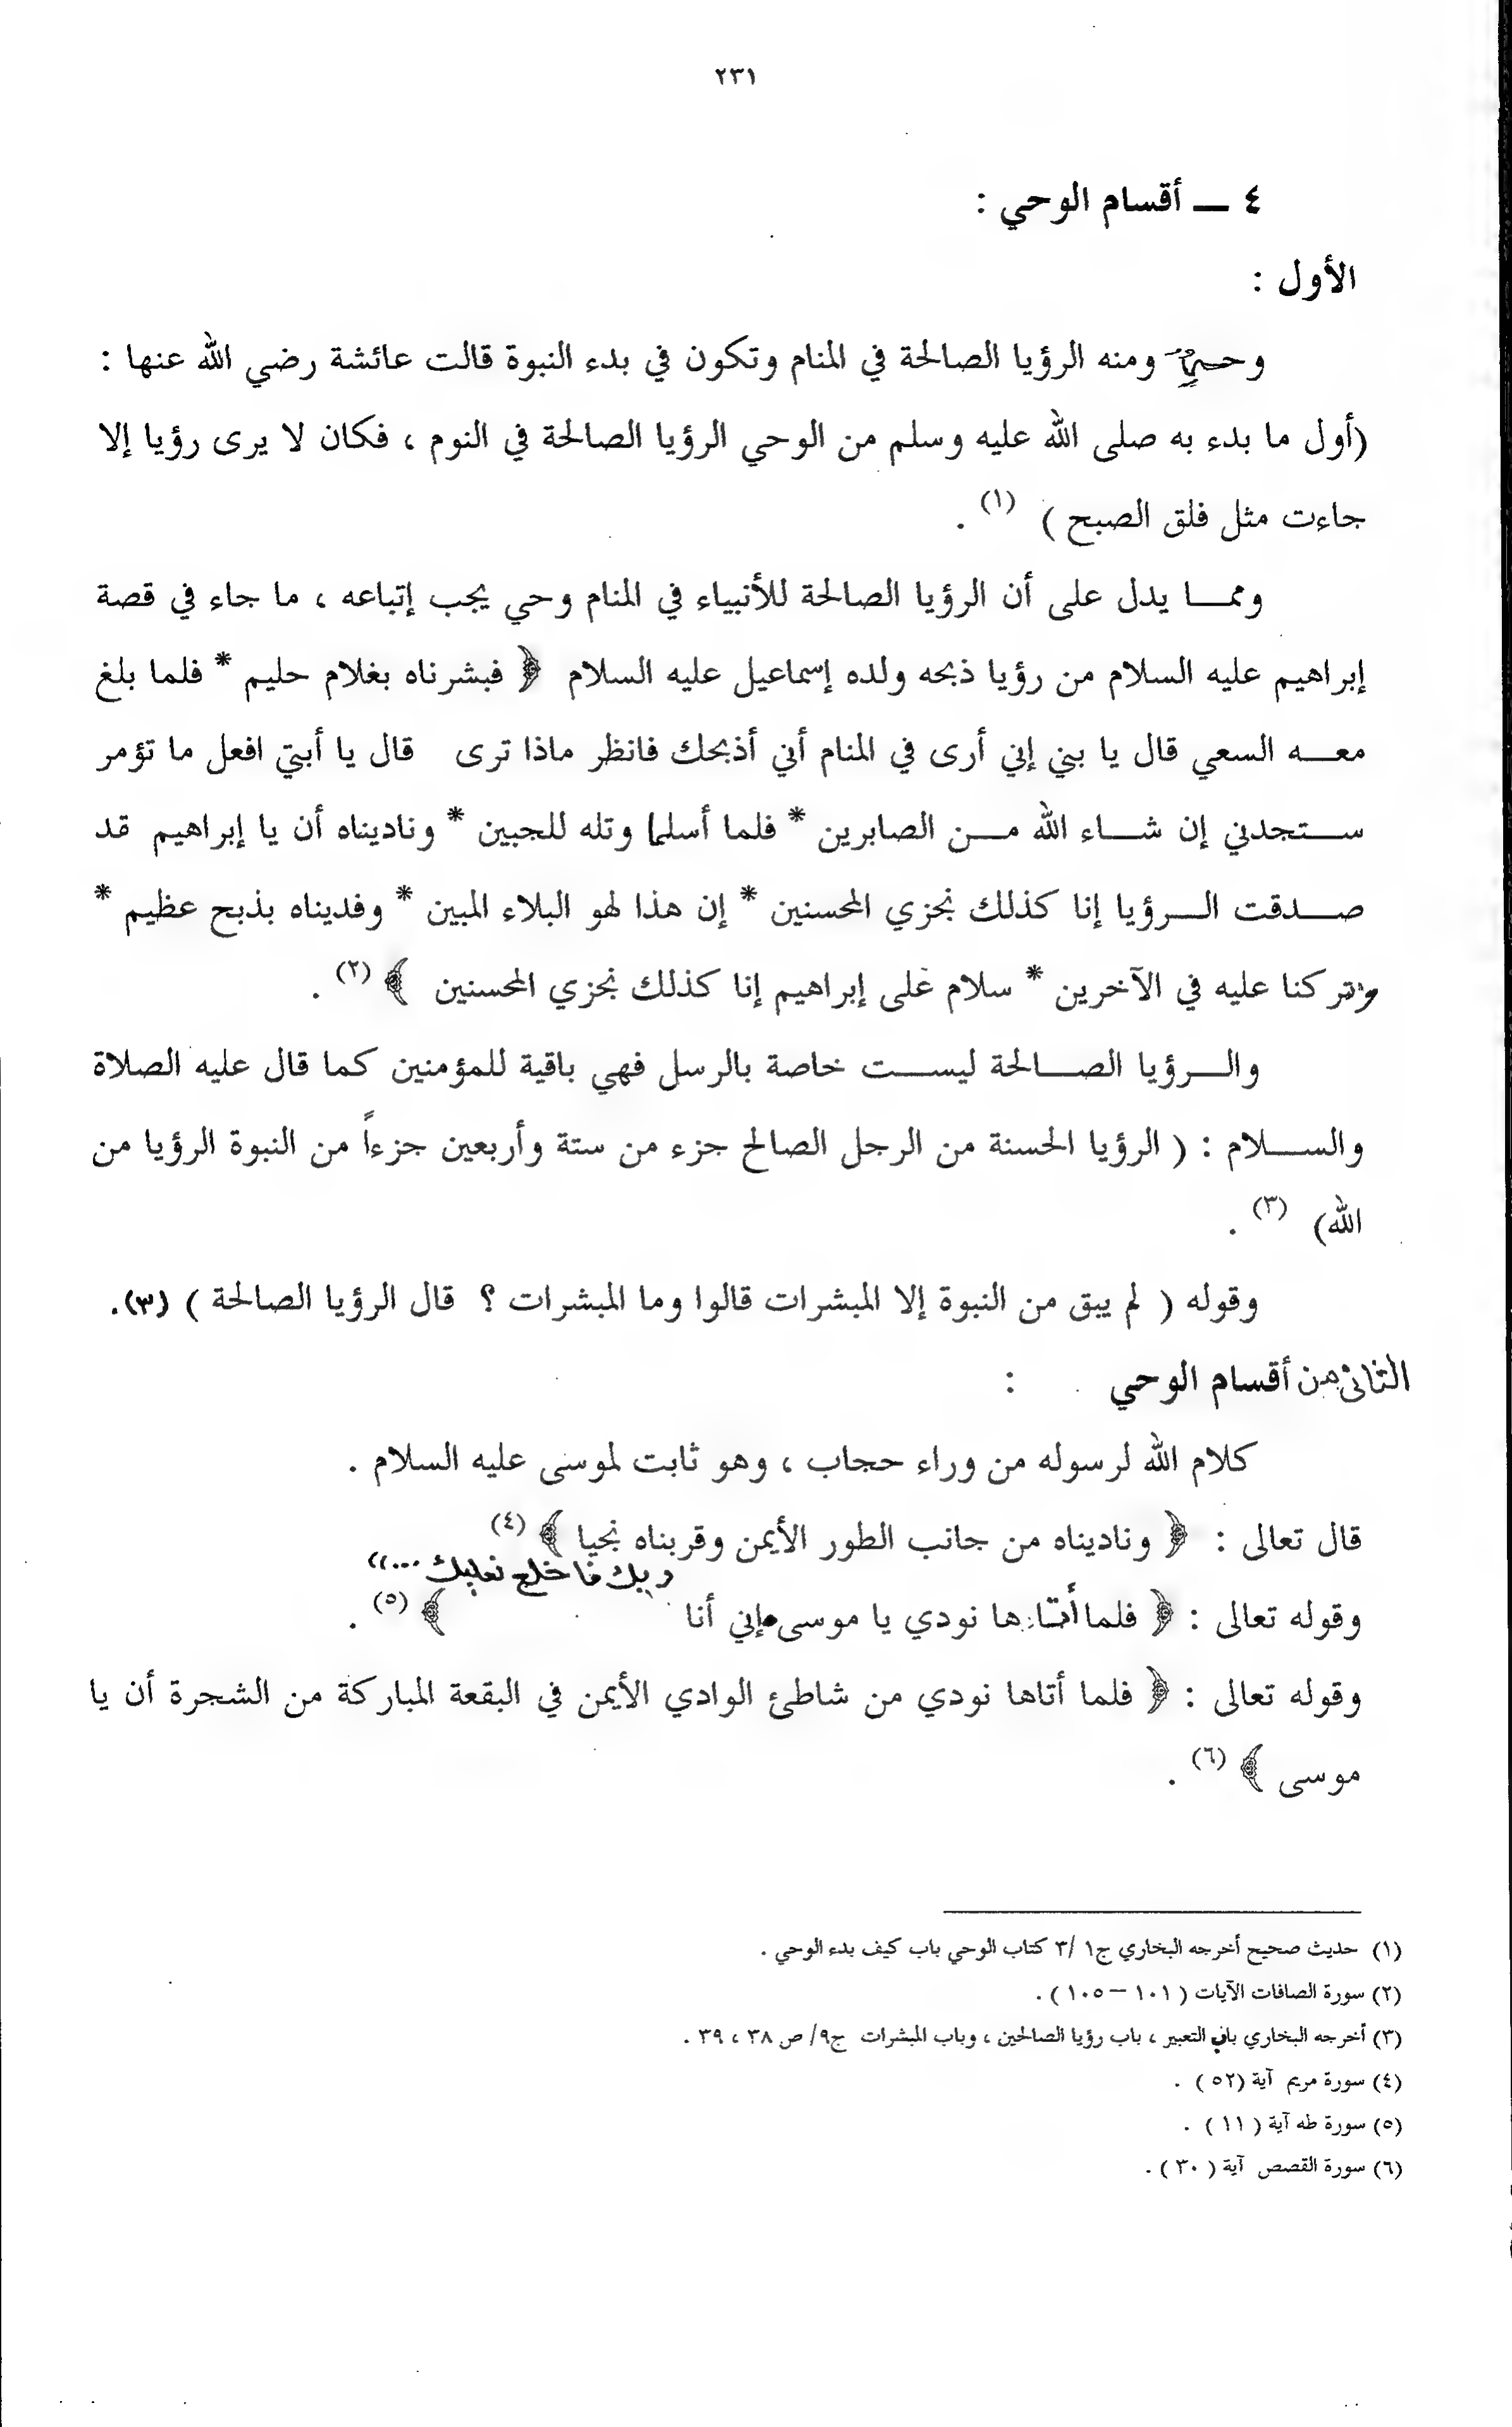 ٢٣١
٤ ــ أقسام الوحي :
الأول :
ومنه الرؤيا الصالحة في المنام وتكون في بدء النبوة قالت عائشة رضي الله عنها :
(أول ما بدء به صلى الله عليه وسلم من الوحي الرؤيا الصالحة في النوم ، فكان لا يرى رؤيا إلا
جاءت مثل فلق الصبح ) (١) .
وممـــا يدل على أن الرؤيا الصالحة للأنبياء في المنام وحي يجب إتباعه ، ما جاء في قصة
إبراهيم عليه السلام من رؤيا ذبحه ولده إسماعيل عليه السلام ﴿ فبشرناه بغلام حليم * فلما بلغ
معـــه السعي قال يا بني إني أرى في المنام أني أذبحك فانظر ماذا ترى قال يا أبتي افعل ما تؤمر
ســـتجدني إن شـــاء الله مـــن الصابرين * فلما أسلما وتله للجبين * وناديناه أن يا إبراهيم قد
صـــدقت الـــرؤيا إنا كذلك نجزي المحسنين * إن هذا لهو البلاء المبين * وفديناه بذبح عظيم *
وتركنا عليه في الآخرين * سلام على إبراهيم إنا كذلك نجزي المحسنين ﴾ (٢) .
والـــرؤيا الصـــالحة ليســـت خاصة بالرسل فهي باقية للمؤمنين كما قال عليه الصلاة
والســـلام : ( الرؤيا الحسنة من الرجل الصالح جزء من ستة وأربعين جزءاً من النبوة الرؤيا من
الله) (٣) .
وقوله ( لم يبق من النبوة إلا المبشرات قالوا وما المبشرات ؟ قال الرؤيا الصالحة ) (٣).
الثانى من أقسام الوحي :
كلام الله لرسوله من وراء حجاب ، وهو ثابت لموسى عليه السلام .
قال تعالى : ﴿ وناديناه من جانب الطور الأيمن وقربناه نجيا ﴾ (٤)
وقوله تعالى : ﴿ فلما أتاها نودي يا موسى إني أنا ربك فاخلع نعليك ...)) ﴾ (٥) .
وقوله تعالى : ﴿ فلما أتاها نودي من شاطئ الوادي الأيمن في البقعة المباركة من الشجرة أن يا
موسى ﴾ (٦) .
(١) حديث صحيح أخرجه البخاري ج١ /٣ كتاب الوحي باب كيف بدء الوحي .
(٢) سورة الصافات الآيات ( ١٠١ – ١٠٥ ) .
(٣) أخرجه البخاري باب التعبير ، باب رؤيا الصالحين ، وباب المبشرات ج٩/ ص ٣٨ ، ٣٩ .
(٤) سورة مريم آية (٥٢ ) .
(٥) سورة طه آية ( ١١ ) .
(٦) سورة القصص آية ( ٣٠ ) .